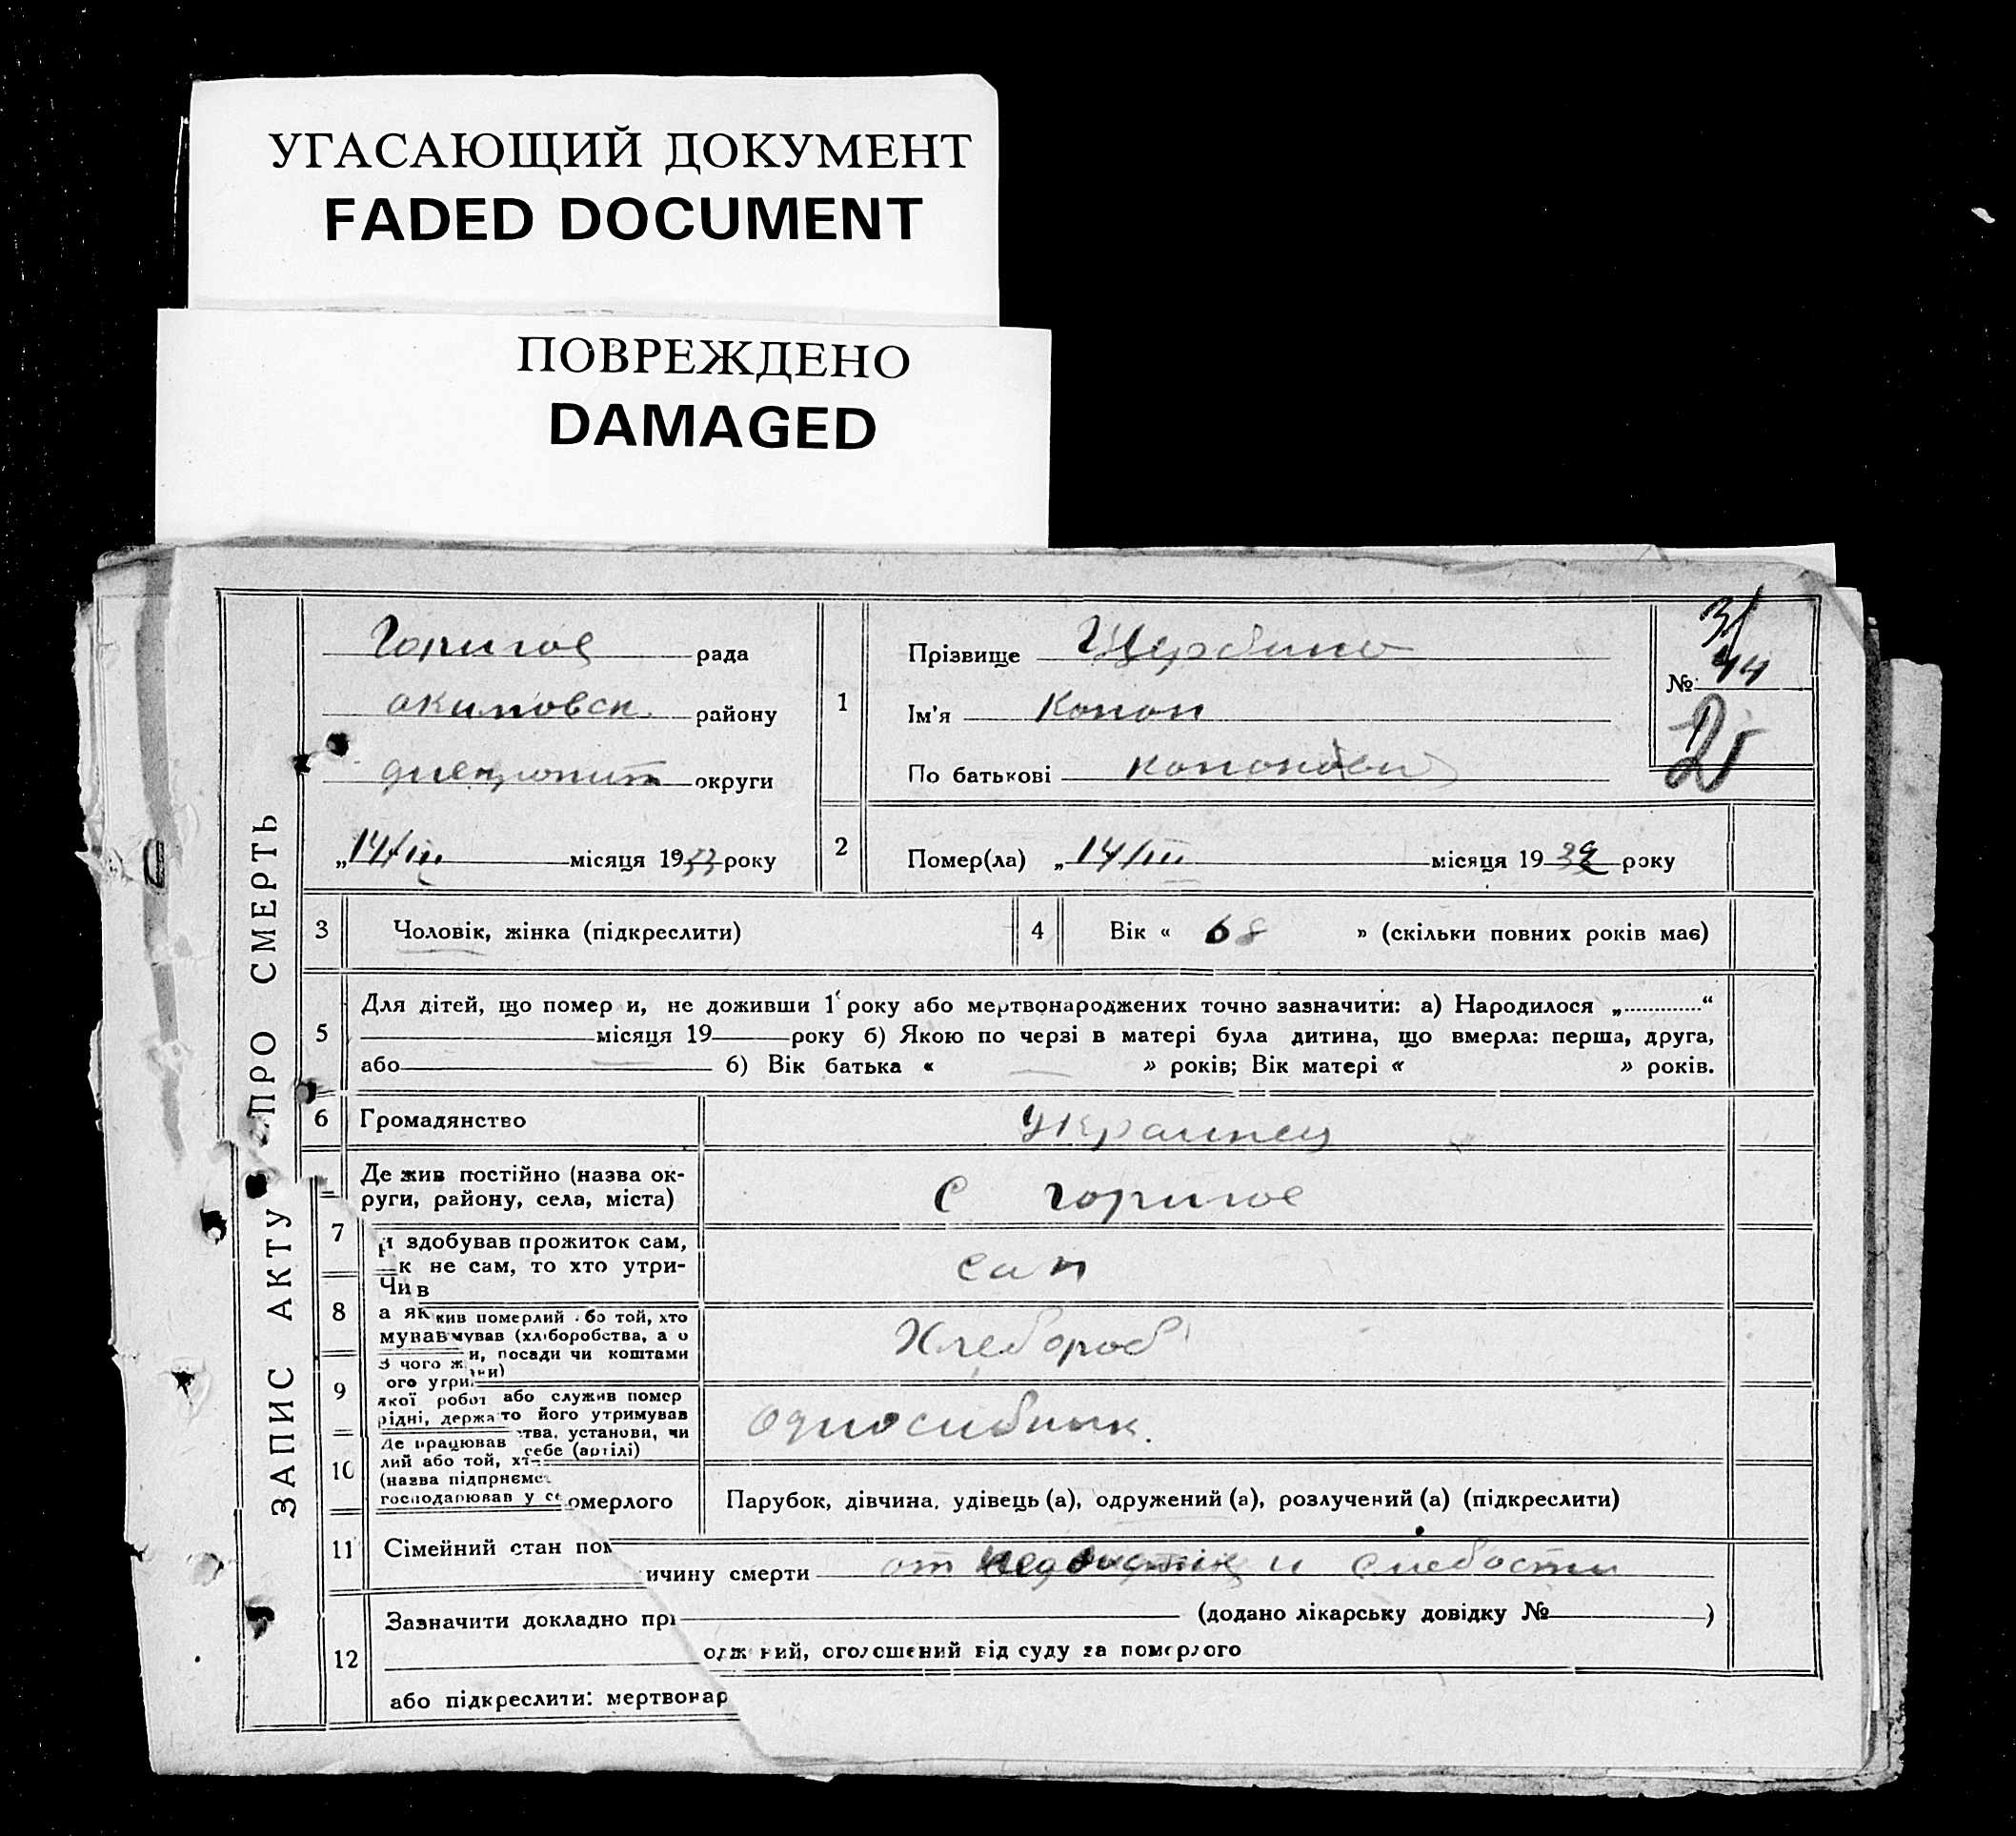 УГАСАЮЩИЙ ДОКУМЕНТ
FADED DOCUMENT
ПОВРЕЖДЕНО
DAMAGED
ЗАПИС АКТУ ПРО СМЕРТЬ
рада
акимовск. району
округи
„14/III місяця 1933 року
1
Прізвище Щербина
Ім'я Конон
По батькові
№ 44
2
Помер(ла) „14/III місяця 19 року
3 Чоловік, жінка (підкреслити)
4 Вік « 68 » (скільки повних років має)
5
Для дітей, що помер и, не доживши 1 року або мертвонароджених точно зазначити: а) Народилося „ “
місяця 19 року б) Якою по черзі в матері була дитина, що вмерла: перша, друга,
або б) Вік батька « » років; Вік матері « » років.
6 Громадянство Украинец
Де жив постійно (назва ок-
руги, району, села, міста)
с
7
здобував прожиток сам,
к не сам, то хто утри-
Чи в
сам
8
а як жив померлий бо той, хто
мував мував (хліборобства, а о
и, посади чи коштами
З чого ж
Хлебороб
9
ого угри
якої робот або служив помер
рідні, держа то його утримував
тва, установи, чи
Де працював себе (артілі)
10
лий або той, хт
(назва підприємс
господарював у се
одиосибник.
омерлого
Парубок, дівчина, удівець (а), одружений (а), розлучений (а) (підкреслити)
11 Сімейний стан пом
ичину смерти от и слебости
Зазначити докладно при
(додано лікарську довідку № )
12
одж ний, оголошений від суду за померлого
або підкреслити: мертвонар